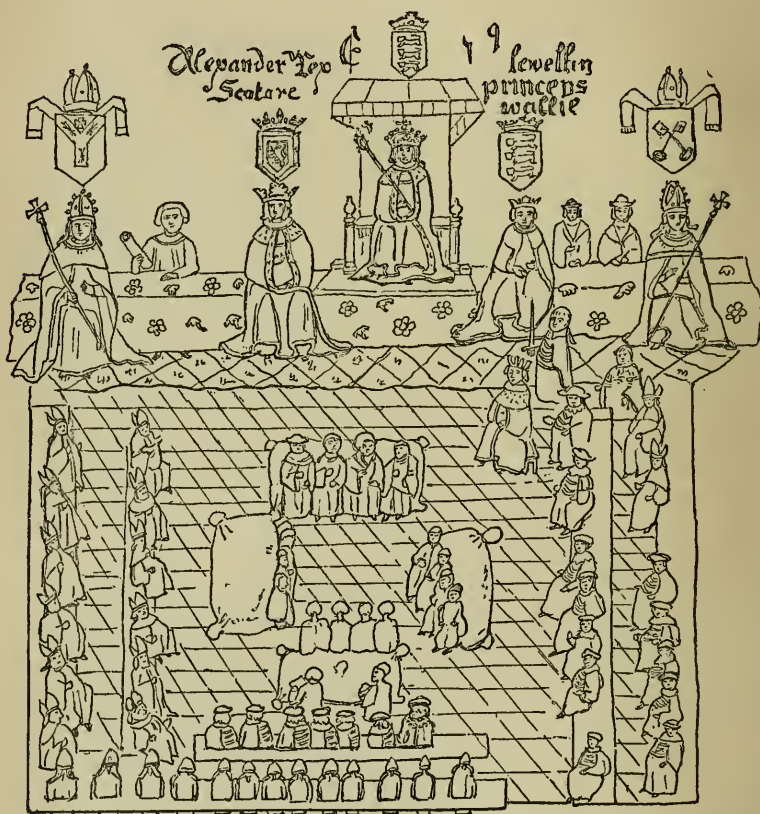 Alexander Rex
Scotare
E 1 9
lewellin
princeps
wallie